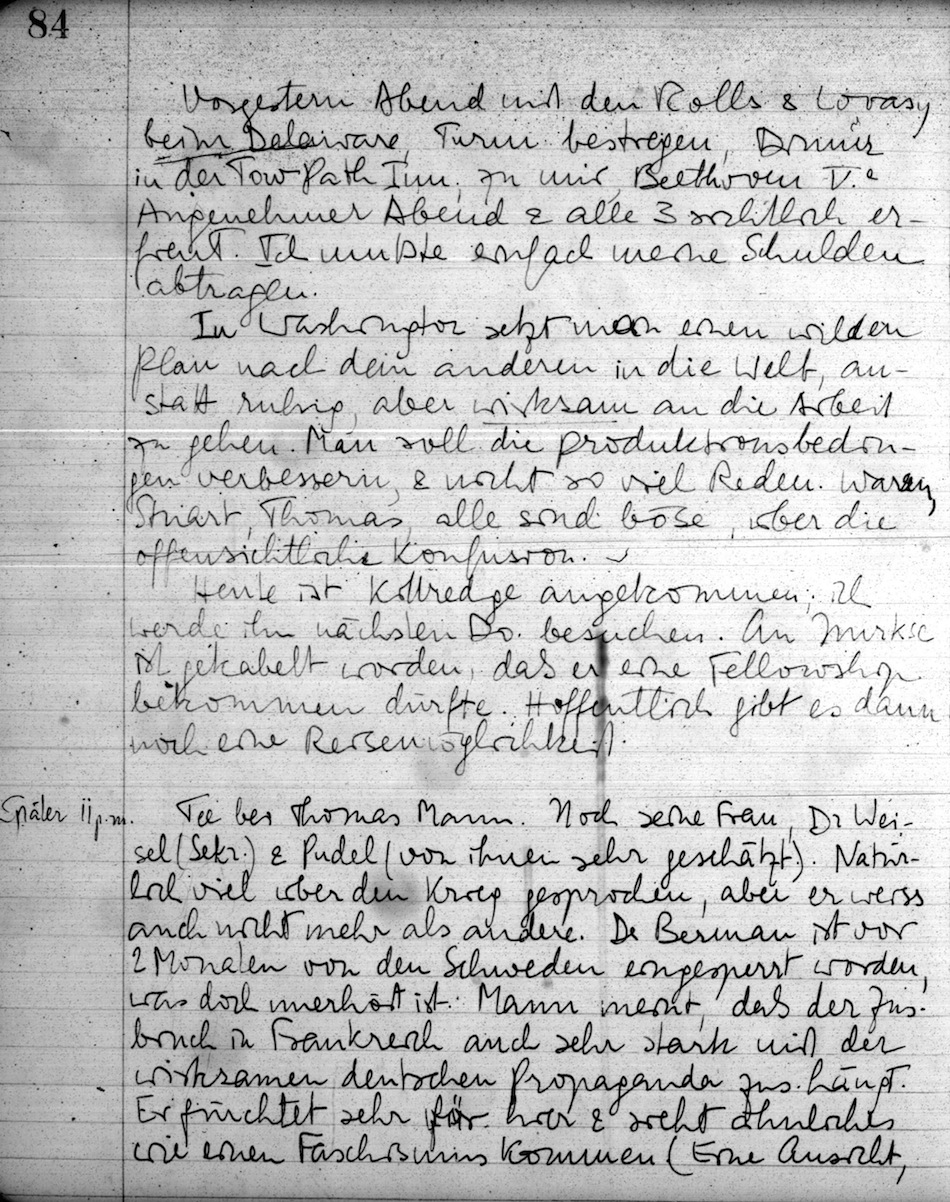 84
Vorgestern Abend mit den Rolls & Lovasy
beim Delaware, Turm bestiegen, Dinner
in der Tow Path Inn, zu mir, Beethoven V.e
Angenehmer Abend & alle 3 sichtlich er-
freut. Ich mußte einfach meine Schulden
abtragen.
In Washington setzt man einen wilden
Plan nach dem anderen in die Welt, an-
statt ruhig, aber wirksam an die Arbeit
zu gehen. Man soll die Produktionsbedin-
gen verbessern, & nicht so viel Reden. Warren,
Stuart, Thomas, alle sind böse, über die
offensichtliche Konfusion.
Heute ist Kittredge angekommen; ich
werde ihn nächsten Do. besuchen. An
ist gekabelt worden, daß er eine Fellowship
bekommen dürfte. Hoffentlich gibt es dann
noch eine Reisemöglichkeit.
Später 11 p.m. Tee bei Thomas Mann. Noch seine Frau, Dr Mei-
sel (Sekr.) & Pudel (von ihnen sehr geschätzt). Natür-
lich viel über den Krieg gesprochen, aber er weiss
auch nicht mehr als andere. Dr Berman ist vor
2 Monaten von den Schweden eingesperrt worden,
was doch unerhört ist. Mann meint, daß der Zus.-
bruch in Frankreich auch sehr stark mit der
wirksamen deutschen Propaganda zus. hängt.
Er fürchtet sehr für hier & sieht ähnliches
wie einen Faschismus kommen (Eine Ansicht,